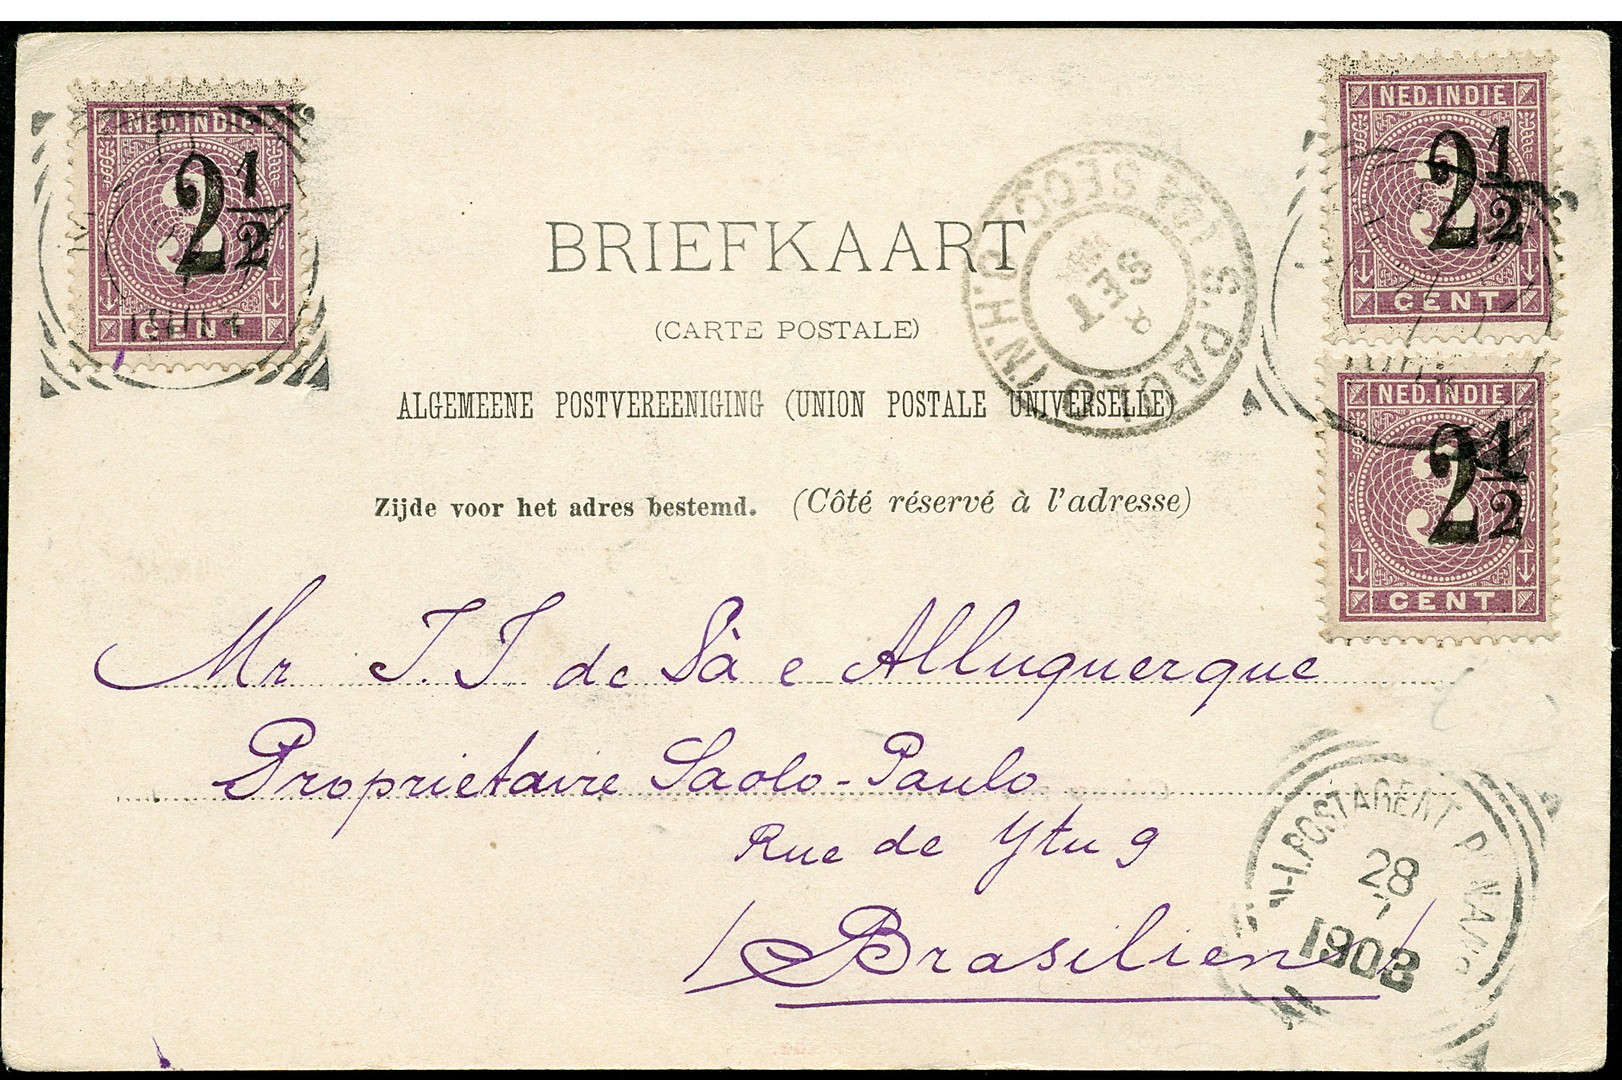 NED.INDIE
2 1/2
CENT
NED.INDIE
2 1/2
CENT
NED.INDIE
2 1/2
CENT
BRIEFKAART
(CARTE POSTALE)
ALGEMEENE POSTVEREENIGING (UNION POSTALE UNIVERSELLE)
Zijde voor het adres bestemd. (Côté réservé à l'adresse)
S. PAULO
SET
Mr J. J de Sà e Alluquerque
Proprietaire Saolo-Paulo
Rue de Ytu 9
/ Brasilien /
N-I.POSTAGENT PINANG
28
1903